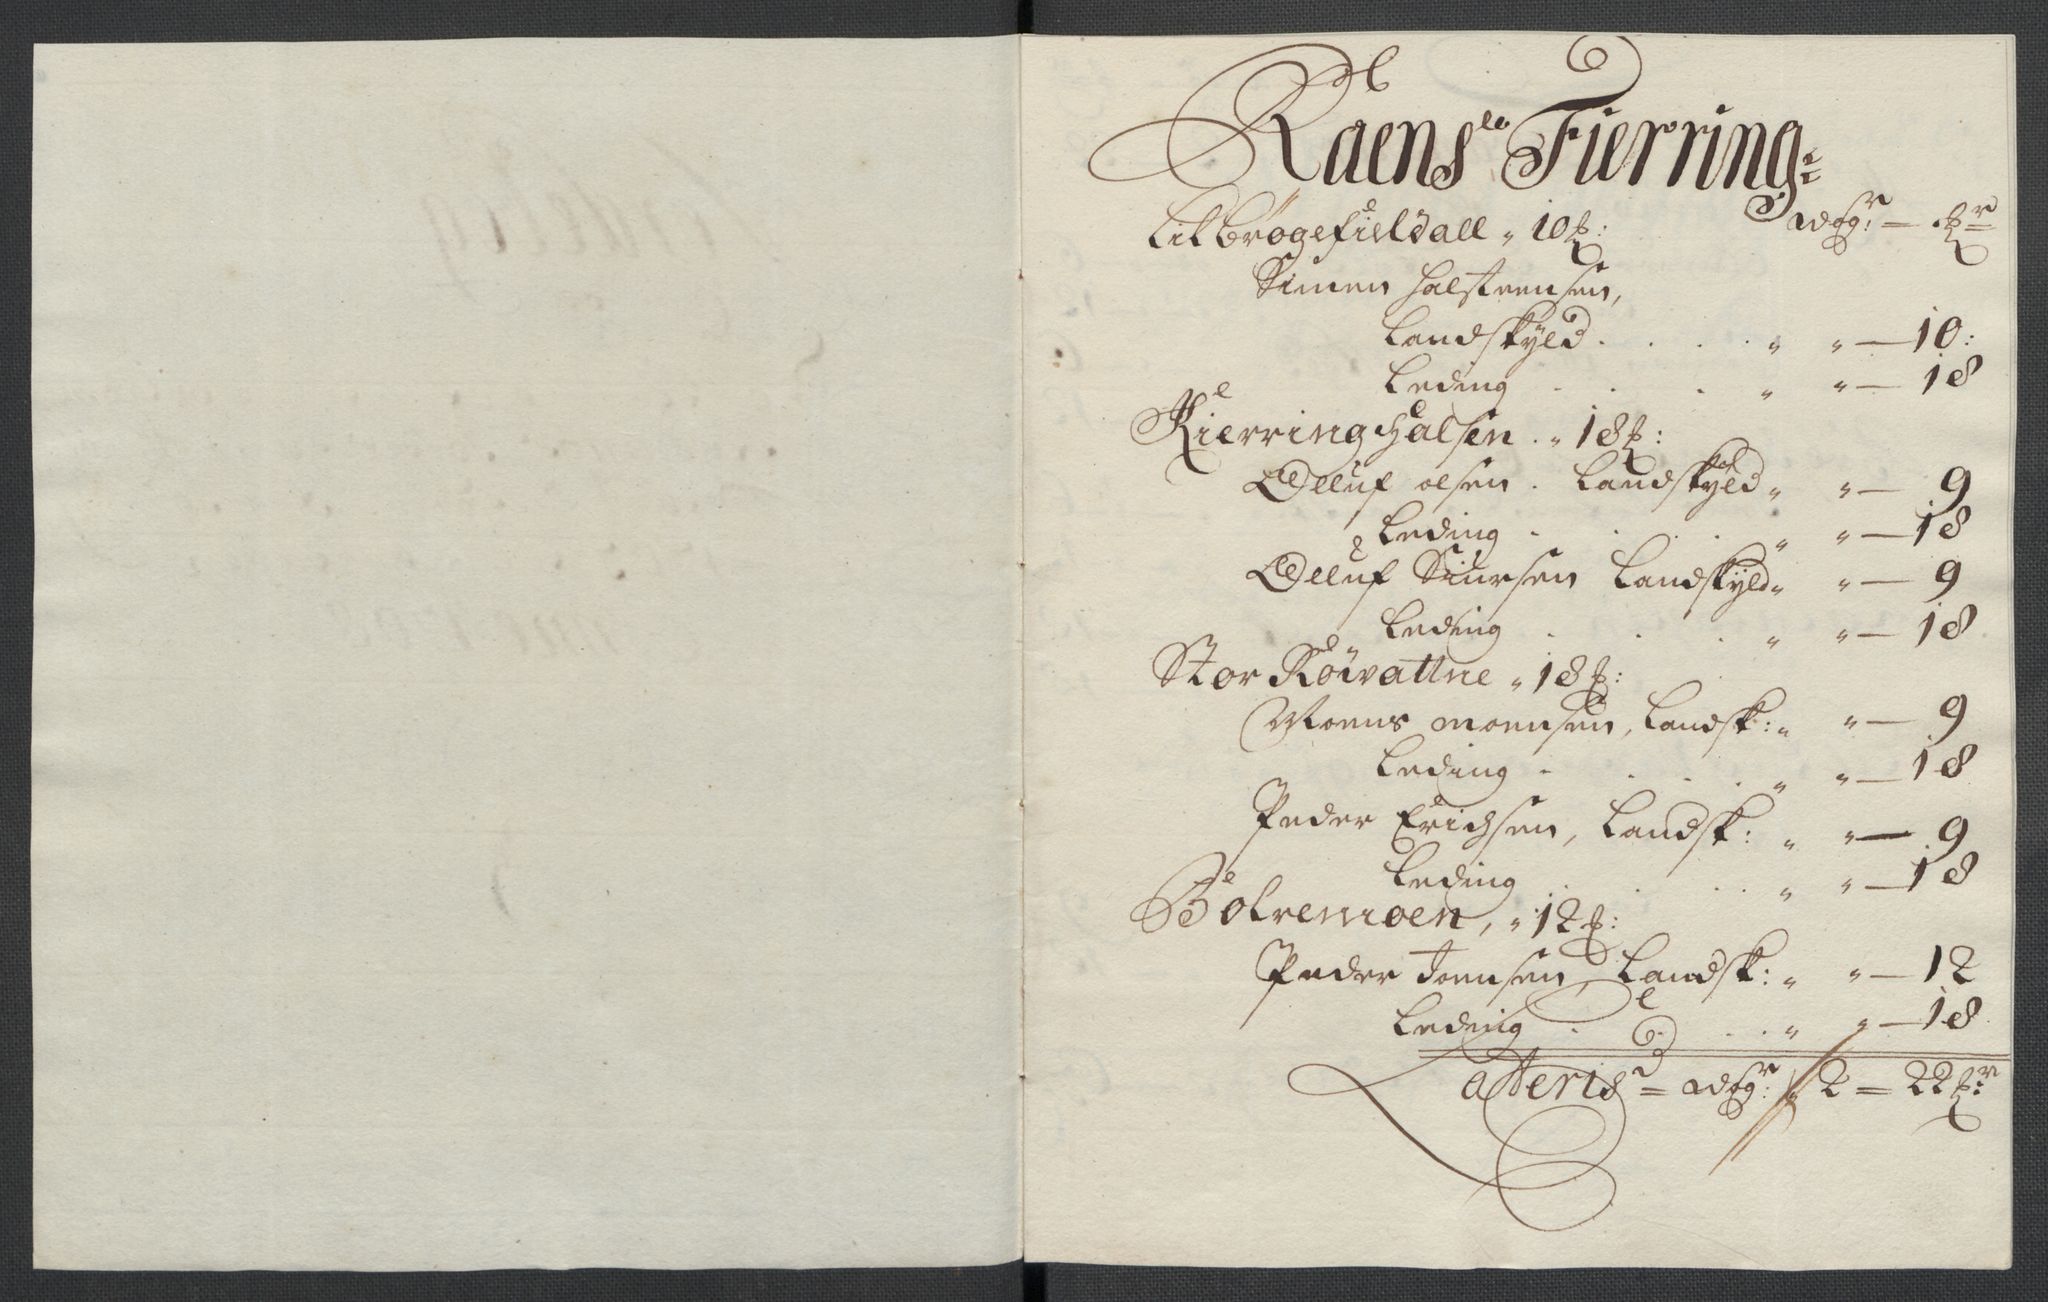 Raens Fierring
Lil Brøgefieldall „ 10 ₰: rdlr: — ₰r
Simen Halsteensen,
Landskyld . . . . „ „ — 10:
Leding . . . „ „ — 18
Kierringhalsen . „ 18 ₰:
Olluf olsen . Landskyld „ „ — 9
Leding . . . . „ „ — 18
Olluf Siursen Landskyld „ „ — 9
Leding . . . „ „ — 18
Stor Røivattne „ 18 ₰:
Moens moensen, Landsk: „ „ — 9
Leding . . . . „ „ — 18
Peder Erichsen, Landsk: „ „ — 9
Leding . . . . „ „ — 18
Bolremoen, „ 12 ₰:
Peder Joensen, Landsk: „ „ — 12
Leding . . . . „ „ — 18
Lateris = rdlr: 2 = 22 ₰r